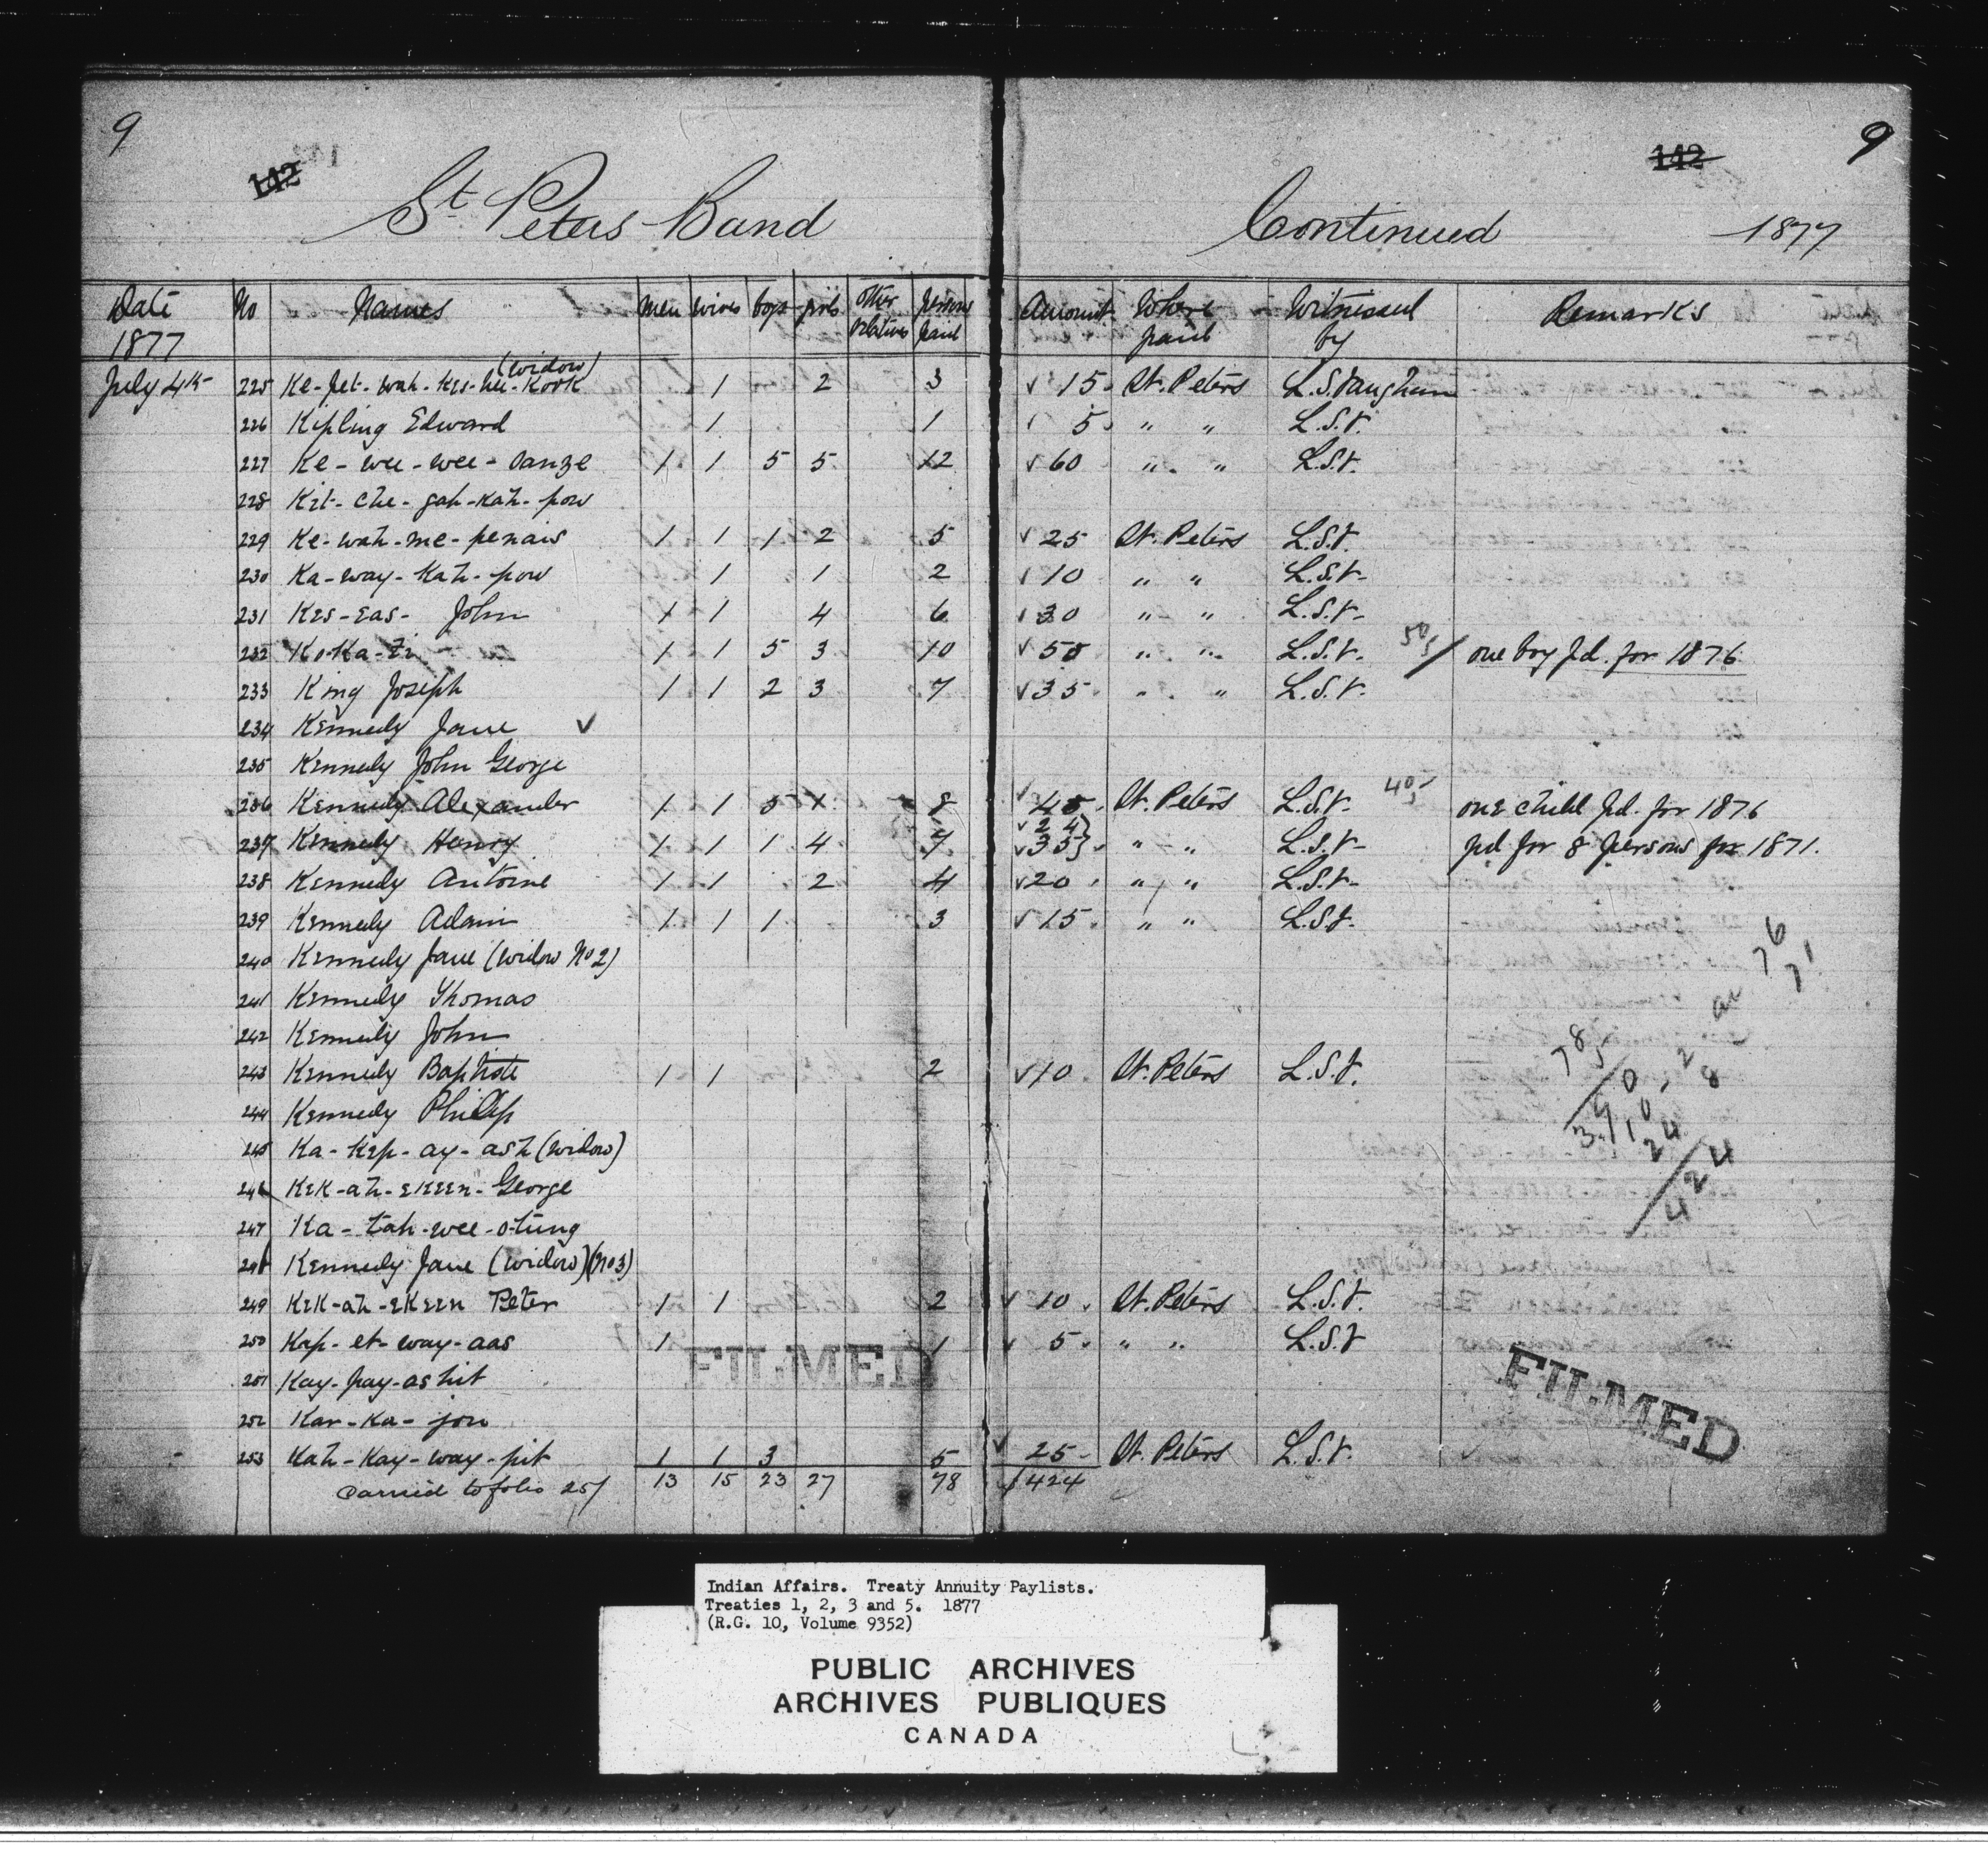 9
142
St Peters Band
Continued
1877
142
9
Date 1877 No Names men wives boys girls other relatives persons paid Amount Where paid Witnessed by Remarks
July 4th 225 Ke-pet-wah-kes-hee-kook (widow) 1 2 3 √ 15. St. Peters L.S. Vaughan
226 Kipling Edward 1 1 √ 5. " " L.S.V.
227 Ke-wee-wee-sanze 1 1 5 5 12 √ 60 " " L.S.V.
228 Kit-che-gah-kah-pow
229 Ke-wah-me-penais 1 1 1 2 5 √ 25 St. Peters L.S.V.
230 Ka-way-kah-pow 1 1 2 √ 10 " " L.S.V.
231 Kes-eas- John 1 1 4 6 √ 30 " " L.S.V.
232 Ko-Ka-Zi 1 1 5 3 10 √ 50 " " L.S.V. one boy pd. for 1876
233 King Joseph 1 1 2 3 7 √ 35. " " L.S.V.
234 Kennedy Jane √
235 Kennedy John George
236 Kennedy Alexander 1 1 5 1 8 √ 40, St. Peters L.S.V. 40 one child pd. for 1876
237 Kennedy Henry 1 1 1 4 7 √ 24 √ 35} " " L.S.V. pd for 8 persons for 1871.
238 Kennedy Antoine 1 1 2 4 √ 20 " " L.S.V.
239 Kennedy Adam 1 1 1 3 √ 15. " " L.S.V.
240 Kennedy Jane (widow No 2)
241 Kennedy Thomas
242 Kennedy John
243 Kennedy Baptiste 1 1 2 √ 10 St. Peters L.S.V.
244 Kennedy Philip
245 Ka-kep-ay-ash (widow)
246 Kek-ah-ekeen-George
247 Ka-tah-wee-otung
248 Kennedy Jane (widow) (No 3)
249 Kek-ah-ekeen Peter 1 1 2 √ 10. St. Peters L.S.V.
250 Kap-et-way-aas 1 1 √ 5. " " L.S.V
251 Kay-pay-ashit
252 Kar-ka-jou
253 Kah-kay-way-pit 1 1 3 5 √ 25- St. Peters L.S.V.
Carried to folio 257 13 15 23 27 78 $424
78
5
424
FILMED
FILMED
Indian Affairs. Treaty Annuity Paylists.
Treaties 1, 2, 3 and 5. 1877
(R.G. 10, Volume 9352)
PUBLIC ARCHIVES
ARCHIVES PUBLIQUES
CANADA